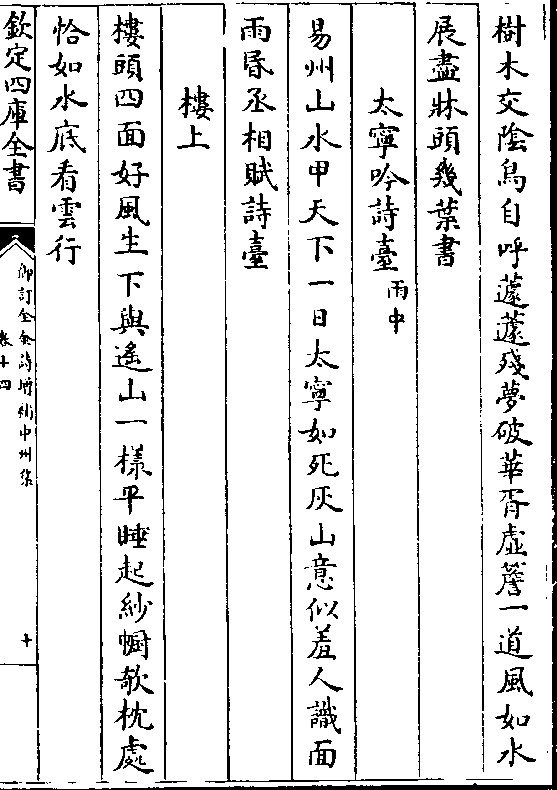 樹木交陰鳥自呼蘧蘧殘夢破華胥虛簷一道風如水
展盡牀頭幾葉書
太寧吟詩臺雨中
易州山水甲天下一日太寧如死灰山意似羞人識面
雨昏丞相賦詩臺
樓上
樓頭四面好風生下與遙山一樣平睡起紗幮欹枕處
恰如水底看雲行
欽定四庫全書
御訂全金詩增補中州集
卷十四
十